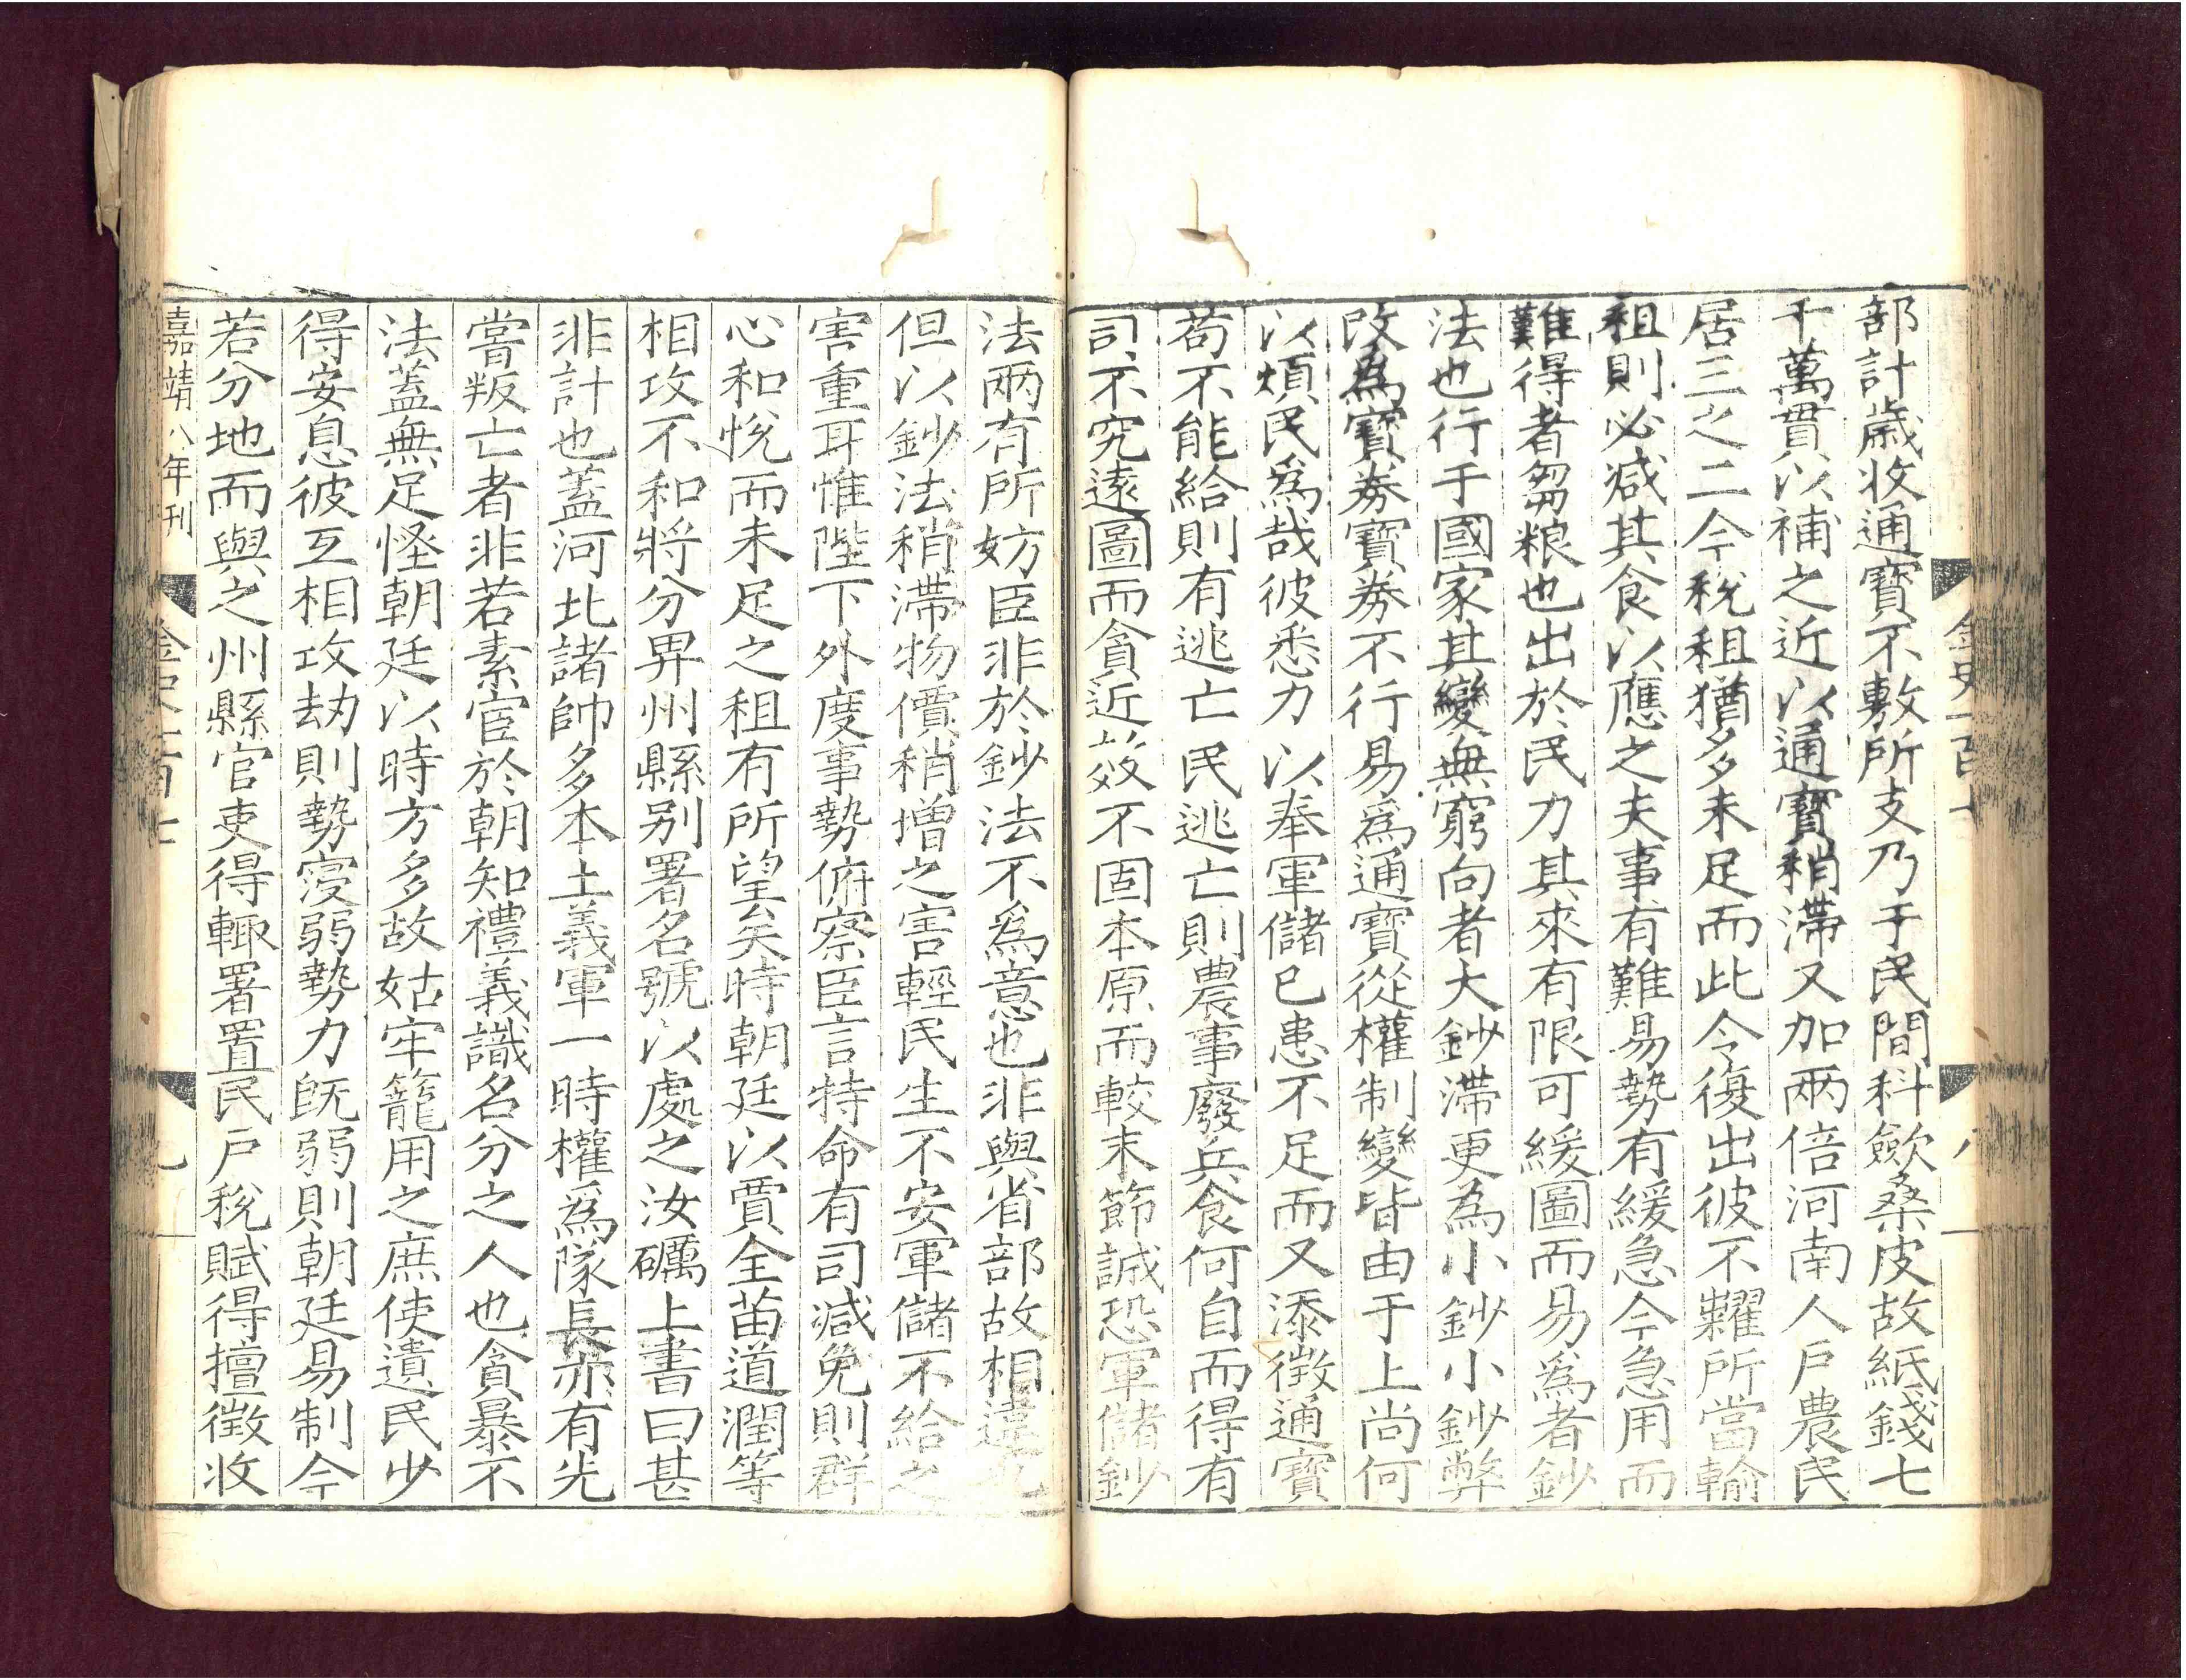 部計歲收通寶不敷所支乃于民間科歛桑皮故紙錢七
千萬貫以補之近以通寶稍滯又加兩倍河南人戶農民
居三之二今稅租猶多未足而此令復出彼不糶所當輸
租則必减其食以應之夫事有難易勢有緩急今急用而
難得者芻粮也出於民力其來有限可緩圖而易爲者鈔
法也行于國家其變無窮向者大鈔滯更為小鈔小鈔弊
改為寶券寶券不行易爲通寶從權制變皆由于上尚何
以煩民爲哉彼悉力以奉軍儲已患不足而又添徴通寶
苟不能給則有逃亡民逃亡則農事廢兵食何自而得有
司不究遠圖而貪近效不固本原而較末節誠恐軍儲鈔
法兩有所妨臣非於鈔法不爲意也非與省部故相違也
但以鈔法稍滯物價稍增之害輕民生不安軍儲不給之
害重耳惟陛下外度事勢俯察臣言特命有司减免則群
心和悅而未足之租有所望矣時朝廷以賈全苗道潤等
相攻不和將分畀州縣别署名號以處之汝礪上書曰甚
非計也蓋河北諸帥多本土義軍一時權爲隊長亦有先
嘗叛亡者非若素宦於朝知禮義識名分之人也貪暴不
法蓋無足怪朝廷以時方多故姑牢籠用之庶使遺民少
得安息彼互相攻劫則勢寖弱勢力旣弱則朝廷易制今
若分地而與之州縣官吏得輙署置民戶稅賦得擅徴收
嘉靖八年刊